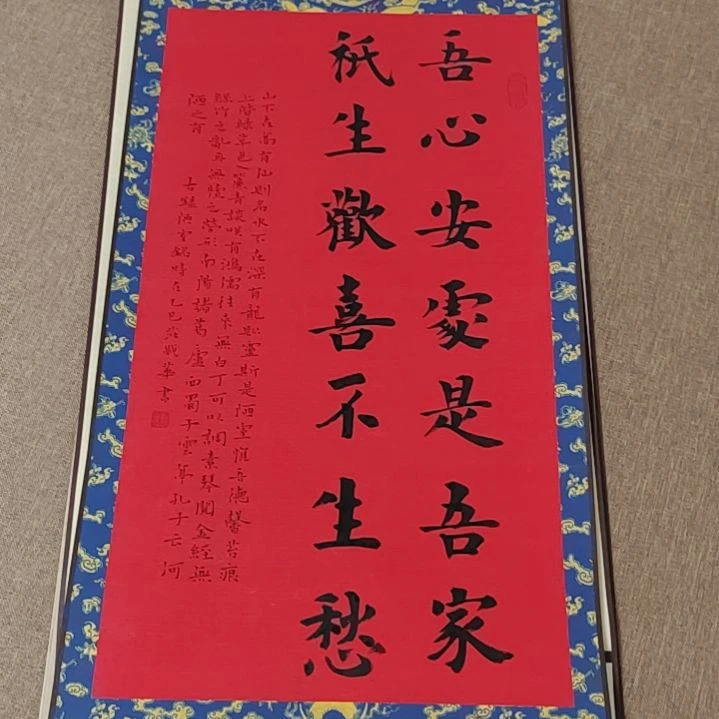 吾心安處是吾家
祇生歡喜不生愁
山不在高有仙則名水不在深有龍則靈斯是陋室惟吾德馨苔痕
上階綠草色入簾青談笑有鴻儒往來無白丁可以調素琴閱金經無
絲竹之亂耳無牘之勞形南陽諸葛廬西蜀子雲亭孔子云何
陋之有 陋室銘時在乙巳 華書